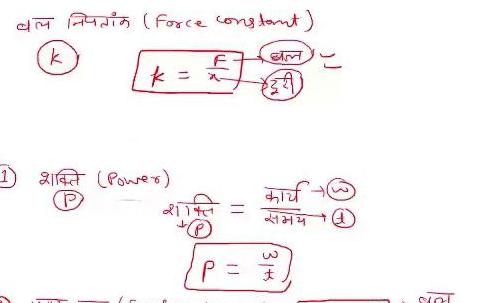 बल नियतांक (Force constant)
k
k = F/x → बल =
→ दूरी
1 शक्ति (Power)
P
शक्ति = कार्य/समय → w
→ P → t
P = w/t